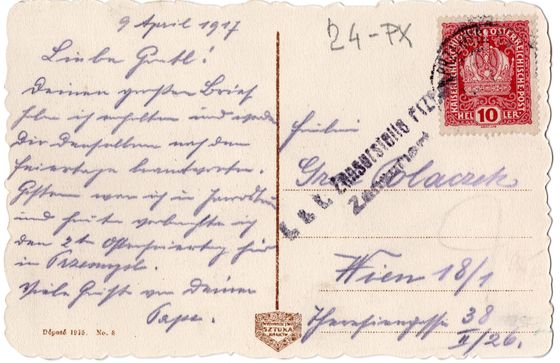 9 April 1917
Liebe Gretl!
Deinen großen Brief
habe ich erhalten und werde
Dir denselben nach den
Feiertage beantworten.
Gestern war ich in
und heute verbrachte ich
den 2ten Osterfeiertag hier
in Przemysl.
Viele Grüße von Deinem
Papa.
Déposé 1915. No. 8
WYDAWNICTWO
SZTUKA
KRAKÓW
24-PX
KAISERLICHE KÖNIGLICHE ÖSTERREICHISCHE POST
HEL 10 LER
K. u. K.
Zensuriert
Fräulein
Polaczek
Wien 18/1
Theresiengasse 38
II/26.